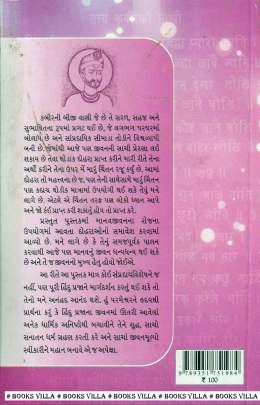 કબીરની બીજી વાણી જે છે તે સરળ, સહજ અને
સુભાષિતના રૂપમાં પ્રગટ થઈ છે, જે લગભગ ઘરઘરમાં
બોલાય છે અને સાંપ્રદાયિક સીમાડા તોડીને વિશ્વવ્યાપી
બની છે. જેમાંથી આજે પણ જીવનની સાચી પ્રેરણા લઈ
શકાય છે તેવા થોડાક દોહરા પ્રાપ્ત કરીને મારી રીતે તેના
અર્થો કરીને તેના ઉપર મેં મારું ચિંતન રજૂ કર્યું છે. આમાં
દોહરા તો મહત્ત્વના છે જ, પણ તેની સાથેસાથે મારું ચિંતન
પણ કદાચ થોડીક માત્રામાં ઉપયોગી થઈ શકે તેવું મને
લાગે છે. એટલે એ ચિંતન તરફ પણ લોકો ધ્યાન આપે
અને જો કંઈ પ્રાપ્ત કરી શકાતું હોય તો પ્રાપ્ત કરે.
પ્રસ્તુત પુસ્તકમાં માનવજીવનના રોજના
ઉપયોગમાં આવતા દોહરાઓનો સમાવેશ કરવામાં
આવ્યો છે. મને લાગે છે કે તેનું સમજપૂર્વક પાલન
કરવાથી આજે પણ માનવનું જીવન ધન્યધન્ય થઈ શકે
છે અને તે જ જીવનનો મુખ્ય હેતુ હોવો જોઈએ.
આ રીતે આ પુસ્તક માત્ર કોઈ સંપ્રદાયવિશેષને જ
નહીં, પણ પૂરી હિંદુ પ્રજાને માર્ગદર્શન કરનારું થઈ શકે છે,
તેનો મને અનહદ આનંદ થશે. હું પરમેશ્વરને હૃદયથી
પ્રાર્થના કરું કે હિંદુ પ્રજાના જીવનમાં ઊતરી આવેલાં
અનેક ધાર્મિક અનિષ્ટોથી બચાવીને તેને શુદ્ધ, સાચો
સનાતન ધર્મ ગ્રહણ કરતી કરે અને સાચાં જીવનમૂલ્યો
સ્વીકારીને મહાન બનાવે એ જ અપેક્ષા.
9789351751984
₹ 100
# BOOKS VILLA # BOOKS VILLA # BOOKS VILLA # BOOKS VILLA #